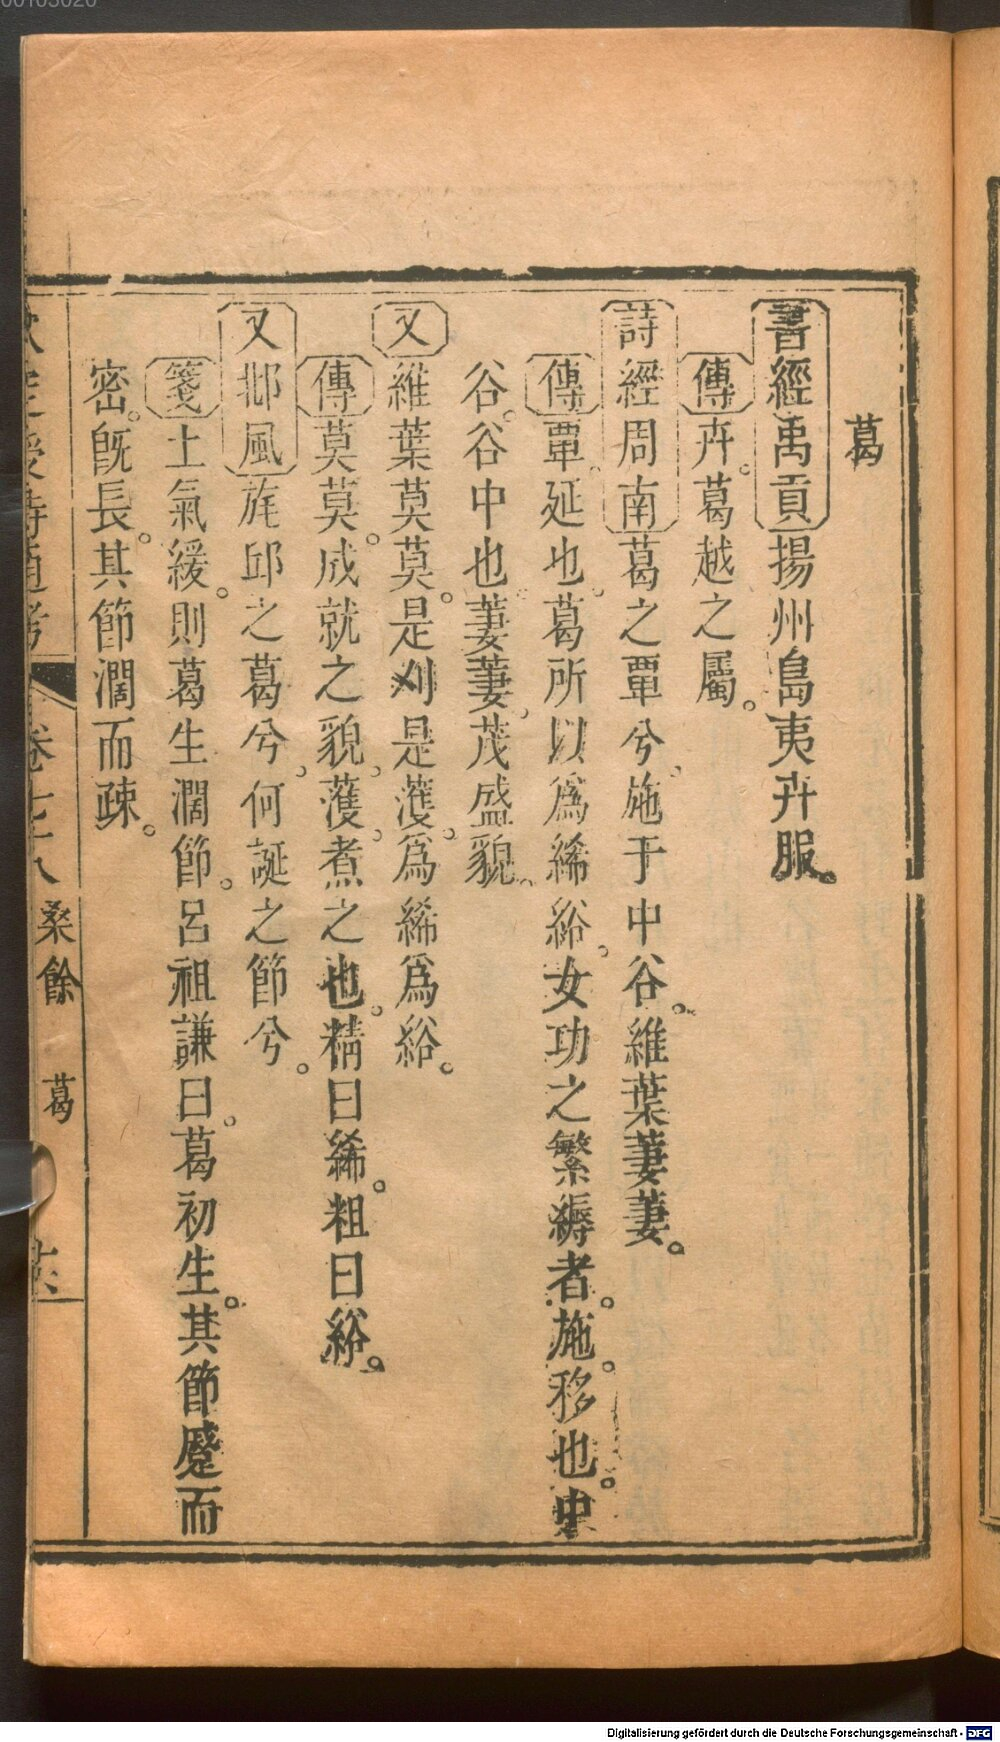 葛
書經禹貢揚州島夷卉服。
傳卉。葛越之屬。
詩經周南葛之覃兮。施于中谷。維葉萋萋。
傳覃。延也。葛所以爲絺綌。女功之繁縟者。施。移也。中
谷。谷中也。萋萋。茂盛貌。
又維葉莫莫。是刈是濩。爲絺爲綌。
傳莫莫。成就之貌。濩。煮之也。精曰絺。粗曰綌。
又邶風旄邱之葛兮。何誕之節兮。
箋土氣緩。則葛生濶節。呂祖謙曰。葛初生。其節蹙而
密。旣長。其節濶而疎。
欽定授時通考 卷七十八 桑餘 葛
Digitalisierung gefördert durch die Deutsche Forschungsgemeinschaft - DFG